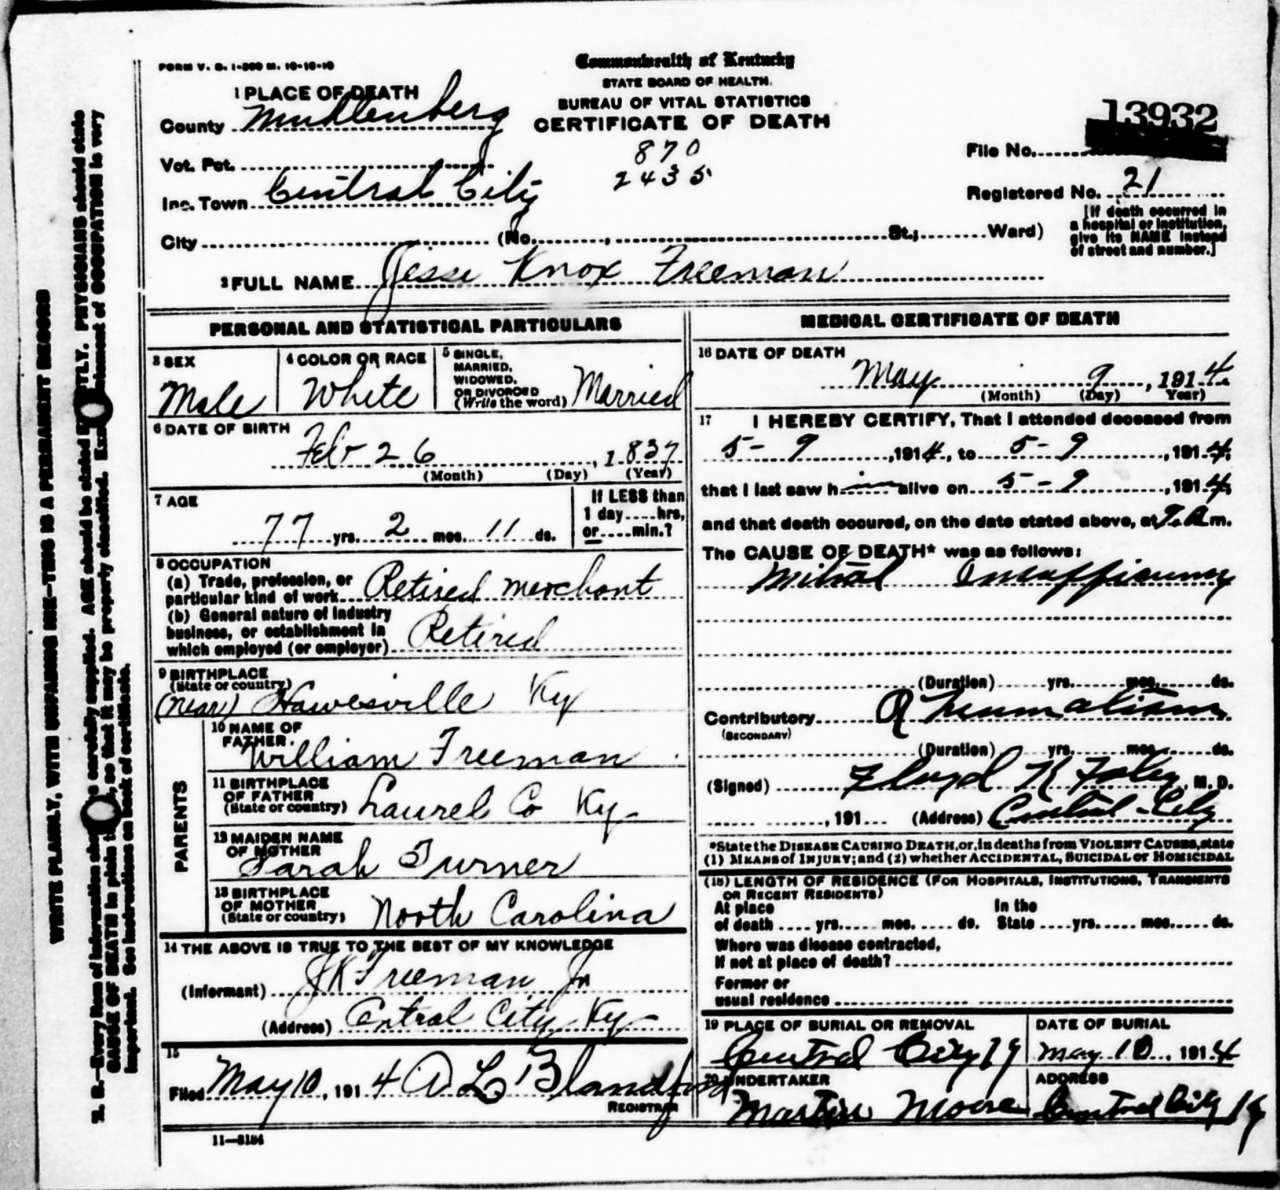 FORM V. S. 1-500 M. 10-10-10
Commonwealth of Kentucky
STATE BOARD OF HEALTH.
BUREAU OF VITAL STATISTICS
CERTIFICATE OF DEATH
1 PLACE OF DEATH
County Muhlenberg
Vot. Pct.
Inc. Town Central City
City (No. , St.; Ward)
870
2435
13932
File No.
Registered No. 21
[If death occurred in
a hospital or institution,
give its NAME instead
of street and number.]
2 FULL NAME Jesse Knox Freeman
PERSONAL AND STATISTICAL PARTICULARS
3 SEX
Male
4 COLOR OR RACE
White
5 SINGLE,
MARRIED,
WIDOWED,
OR DIVORCED
(Write the word) Married
6 DATE OF BIRTH
Feb 26 , 1837
(Month) (Day) (Year)
7 AGE
77 yrs. 2 mos. 11 ds.
If LESS than
1 day....hrs,
or....min.?
8 OCCUPATION
(a) Trade, profession, or
particular kind of work Retired merchant
(b) General nature of industry
business, or establishment in
which employed (or employer) Retired
9 BIRTHPLACE
(State or country)
(near) Hawesville Ky
PARENTS
10 NAME OF
FATHER
William Freeman
11 BIRTHPLACE
OF FATHER
(State or country) Laurel Co Ky
12 MAIDEN NAME
OF MOTHER
Sarah Turner
13 BIRTHPLACE
OF MOTHER
(State or country) North Carolina
14 THE ABOVE IS TRUE TO THE BEST OF MY KNOWLEDGE
(Informant) J K Freeman Jr
(Address) Central City Ky
15
Filed May 10, 1914 A L Blandford
REGISTRAR
11—3184
MEDICAL CERTIFICATE OF DEATH
16 DATE OF DEATH
May 9 , 1914
(Month) (Day) (Year)
17 I HEREBY CERTIFY, That I attended deceased from
5-9 ,1914, to 5-9 ,1914,
that I last saw him alive on 5-9 ,1914,
and that death occured, on the date stated above, at A.m.
The CAUSE OF DEATH* was as follows:
Mitral Insufficiency
(Duration) yrs. mos. ds.
Contributory Rheumatism
(SECONDARY)
(Duration) yrs. mos. ds.
(Signed) Floyd R Foley M.D.
, 191 (Address) Central City
*State the DISEASE CAUSING DEATH, or, in deaths from VIOLENT CAUSES, state
(1) MEANS of INJURY; and (2) whether ACCIDENTAL, SUICIDAL or HOMICIDAL
(18) LENGTH OF RESIDENCE (FOR HOSPITALS, INSTITUTIONS, TRANSIENTS
OR RECENT RESIDENTS)
At place In the
of death .... yrs. mos. ds. State .... yrs. mos. ds.
Where was disease contracted,
If not at place of death?
Former or
usual residence
19 PLACE OF BURIAL OR REMOVAL
Central City Ky
DATE OF BURIAL
May 10, 1914
20 UNDERTAKER
Martin Moore
ADDRESS
Central City Ky
WRITE PLAINLY, WITH UNFADING INK—THIS IS A PERMANENT RECORD
N. B.—Every item of information carefully supplied. AGE should be stated EXACTLY. PHYSICIANS should state
CAUSE OF DEATH in plain so that it may be properly classified. statement of OCCUPATION is very
important. See instructions on back of certificate.